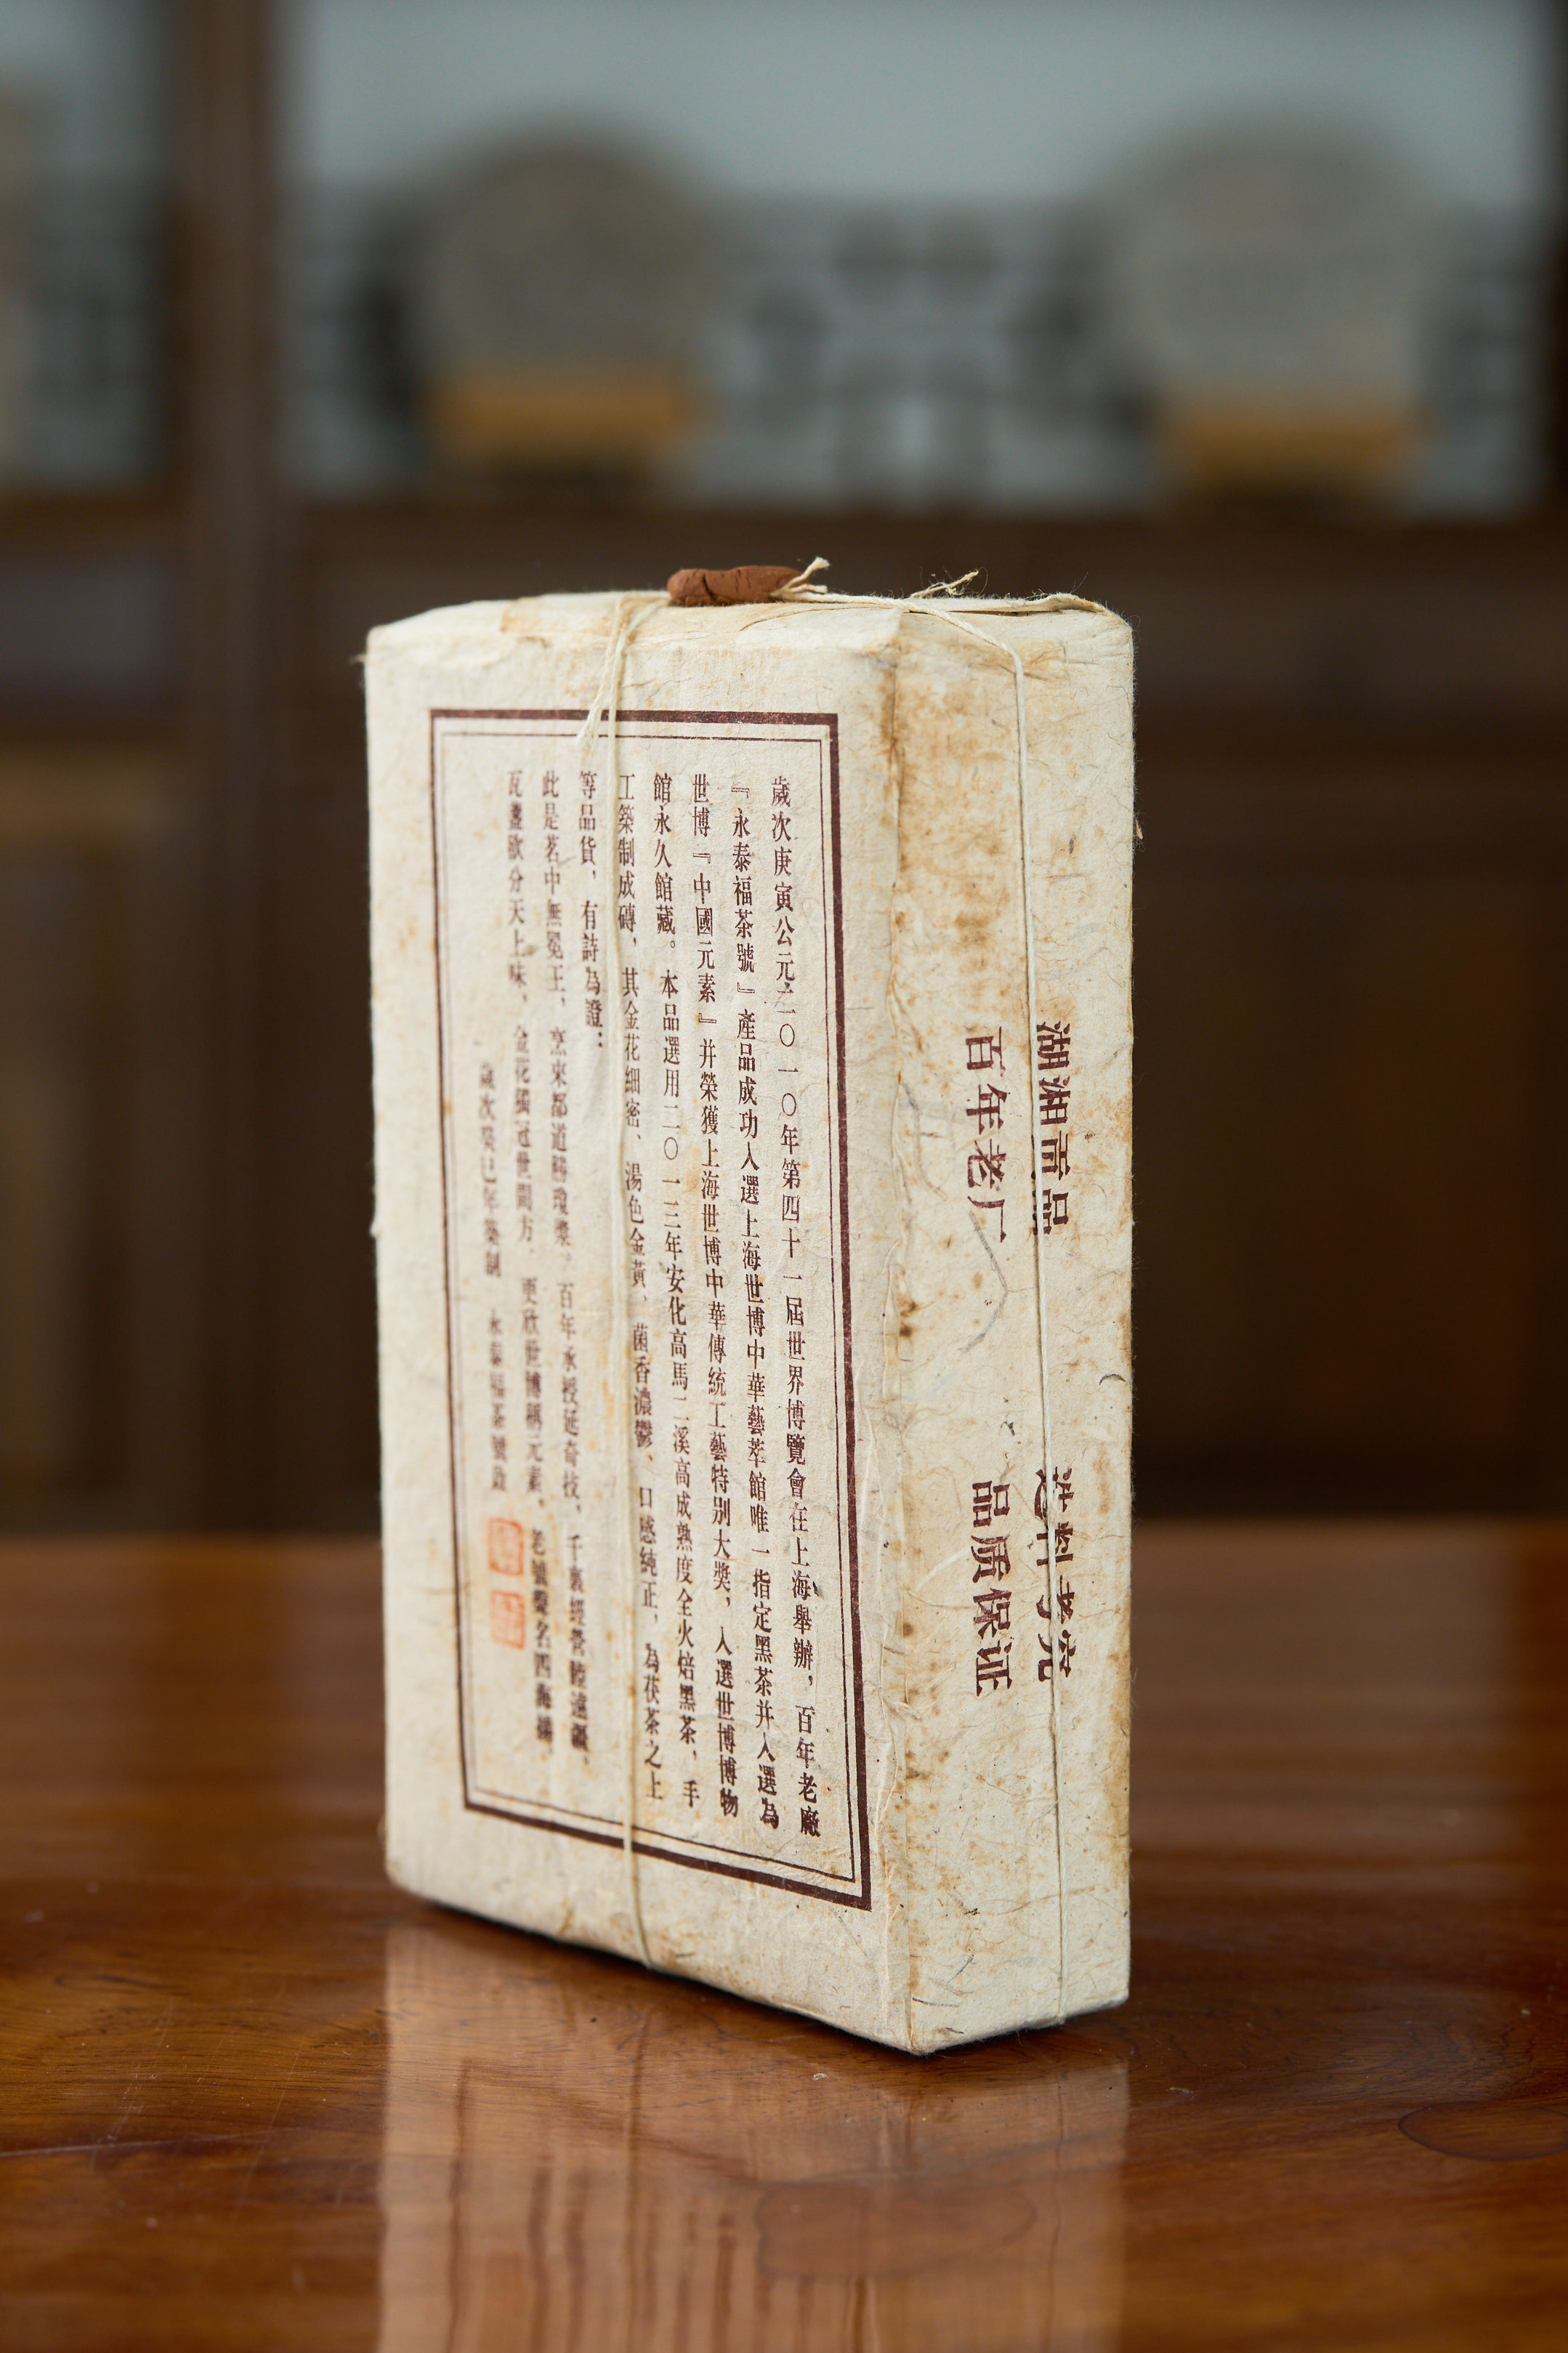 歲次庚寅公元二〇一〇年第四十一屆世界博覽會在上海舉辦，百年老廠
『永泰福茶號』產品成功入選上海世博中華藝萃館唯一指定黑茶并入選為
世博『中國元素』并榮獲上海世博中華傳統工藝特别大獎，入選世博博物
館永久館藏。本品選用二〇一三年安化高馬二溪高成熟度全火焙黑茶，手
工築制成磚，其金花細密、湯色金黃、菌香濃鬱、口感純正，為茯茶之上
等品貨，有詩為證：
此是茗中無冕王，烹來都道勝瓊漿。百年承授延奇技，千裏經營睦遠疆。
瓦盞欲分天上味，金花獨冠世間方．更欣世博稱元素，老號聲名四海
歲次癸巳年築制 永泰福茶號啟
湖湘贡品 选料考究
百年老厂 品质保证